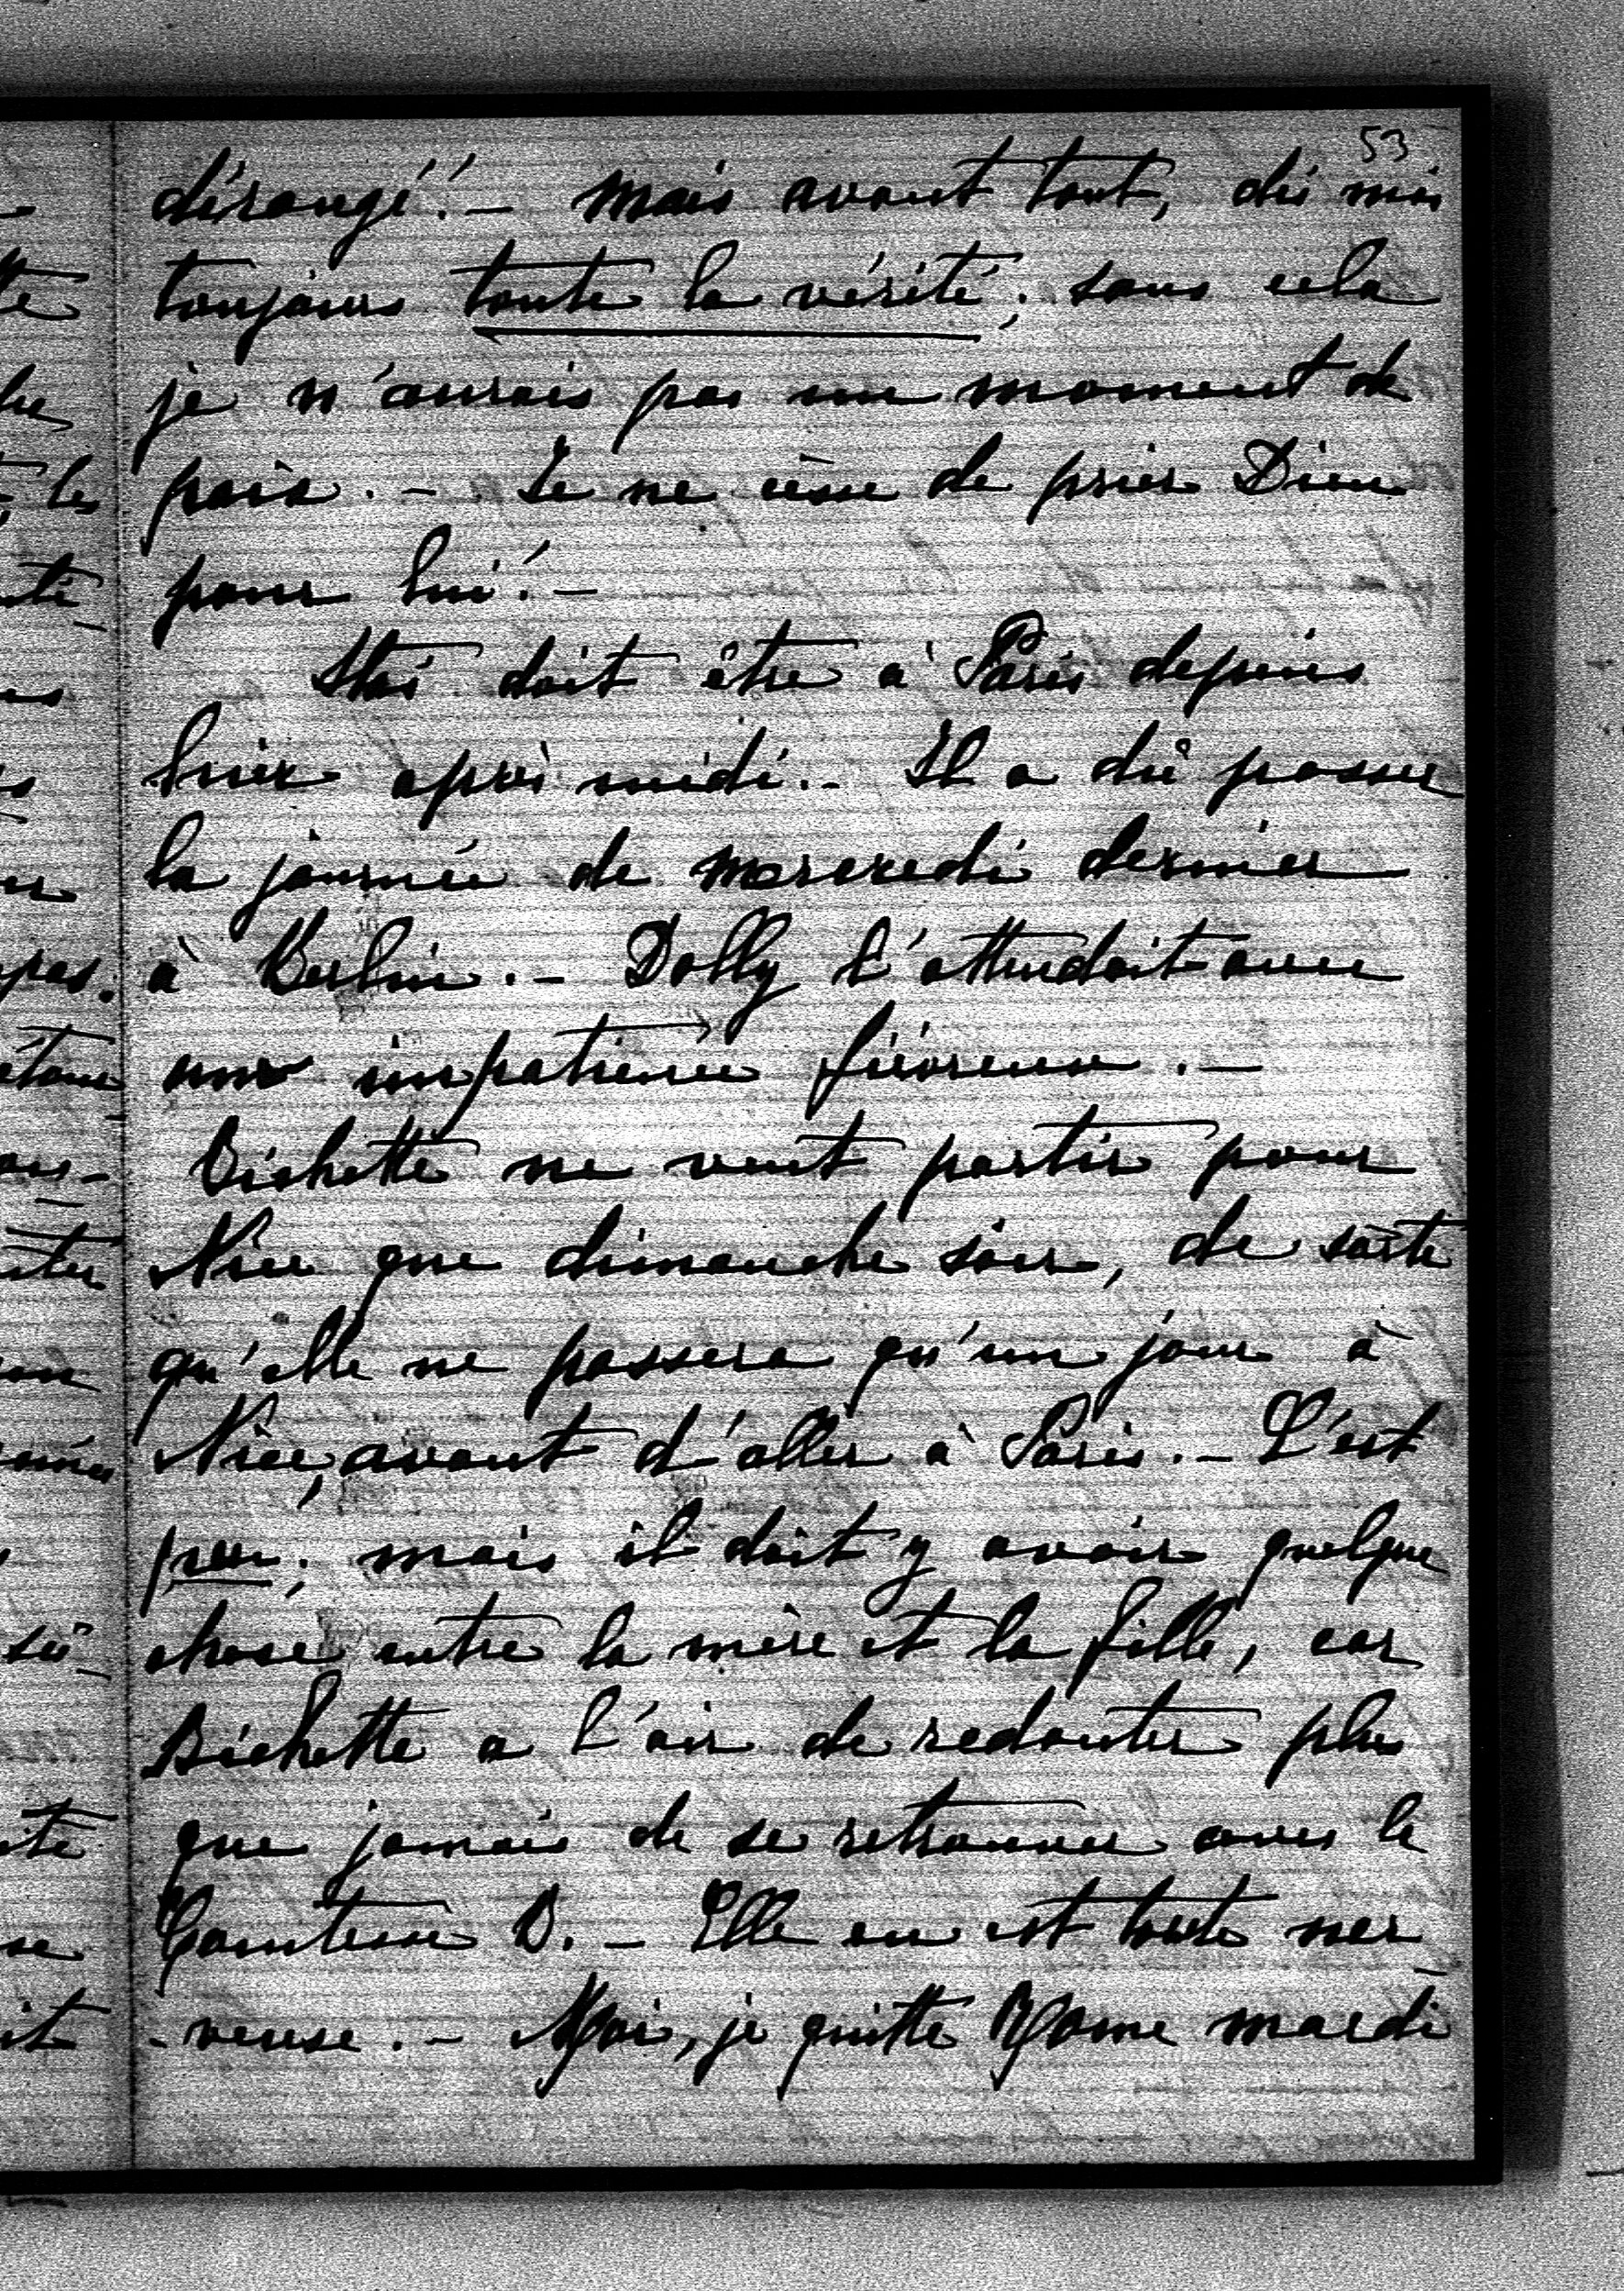 53
dérangé! – Mais avant tout, dis moi
toujours toute la vérité; sans cela
je n'aurais pas un moment de
paix. – Je ne cesse de prier Dieu
pour lui! –
Stas doit être à Paris depuis
hier après midi. – Il a dû passer
la journée de mercredi dernier
à Berlin. – Dolly l'attendait avec
une impatience fiévreuse. –
Bichette ne veut partir pour
Nice que dimanche soir, de sorte
qu'elle ne passera qu'un jour à
Nice, avant d'aller à Paris. – C'est
peu; mais il doit y avoir quelque
chose entre la mère et la fille, car
Bichette a l'air de redouter plus
que jamais de se retrouver avec la
Comtesse B. – Elle en est toute ner-
-veuse. – Moi, je quitte Rome mardi